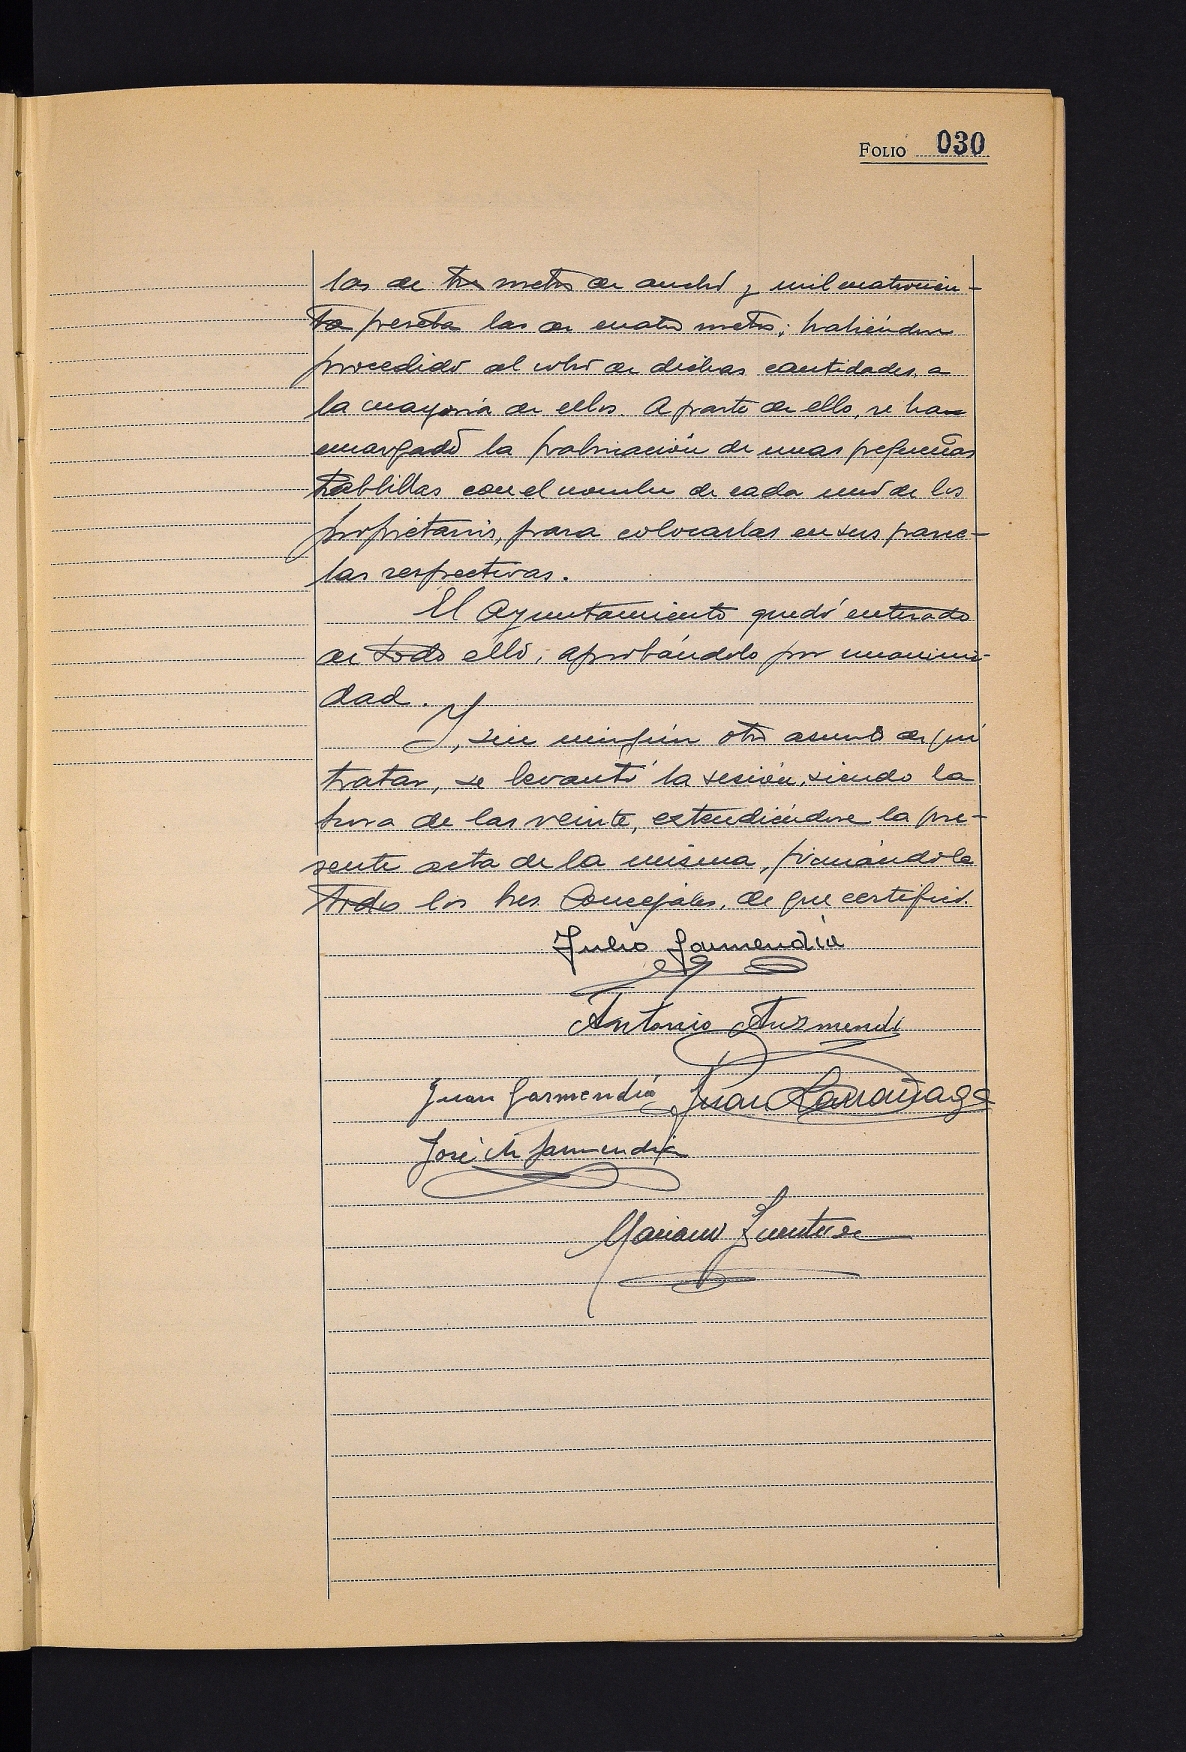 FOLIO 030
las de tres metros de ancho y mil cuatrocien-
tas pesetas las de cuatro metros; habiéndose
procedido al cobro de dichas cantidades a
la mayoría de ellos. Aparte de ello, se han
encargado la fabricación de unas pequeñas
tablillas con el nombre de cada uno de los
propietarios, para colocarlas en sus parce-
las respectivas.
El Ayuntamiento quedó enterado
de todo ello, aprobándolo por unanimi-
dad.
Y, sin ningún otro asunto de qué
tratar, se levantó la sesión, siendo la
hora de las veinte, extendiéndose la pre-
sente acta de la misma, firmándola
todos los Sres. Concejales, de que certifico.
Julio Garmendia
Antonio Auzmendi
Juan Garmendia Juan Larrañaga
José M Garmendia
Mariano